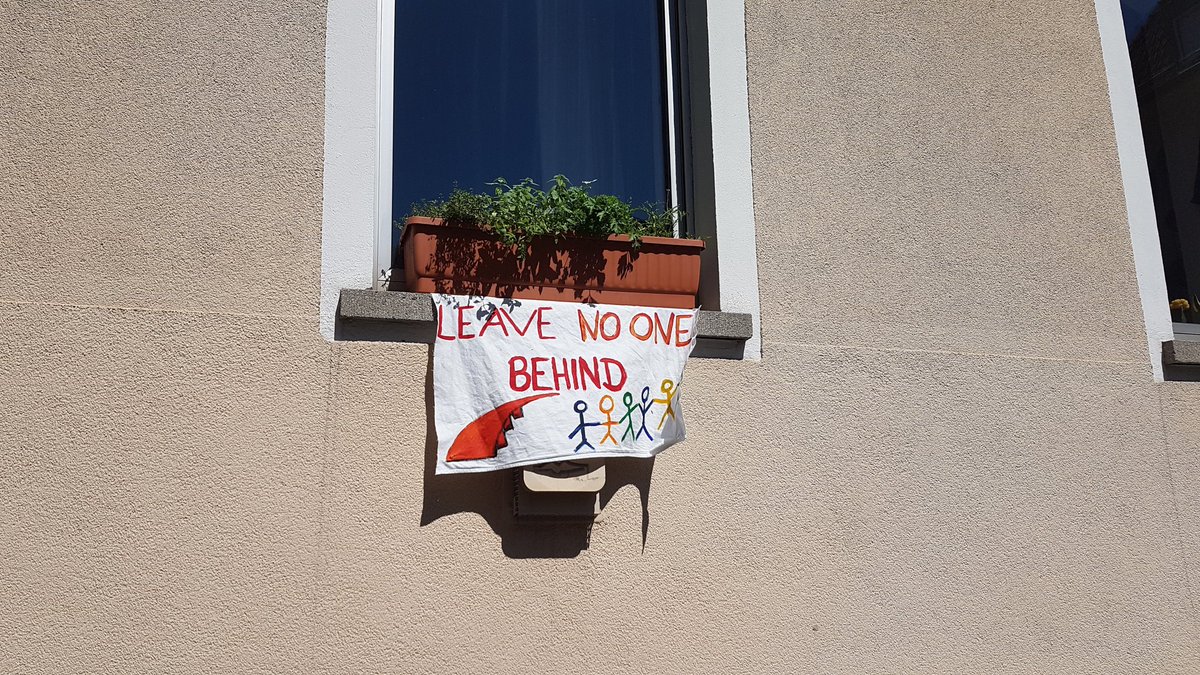 LEAVE NO ONE
BEHIND